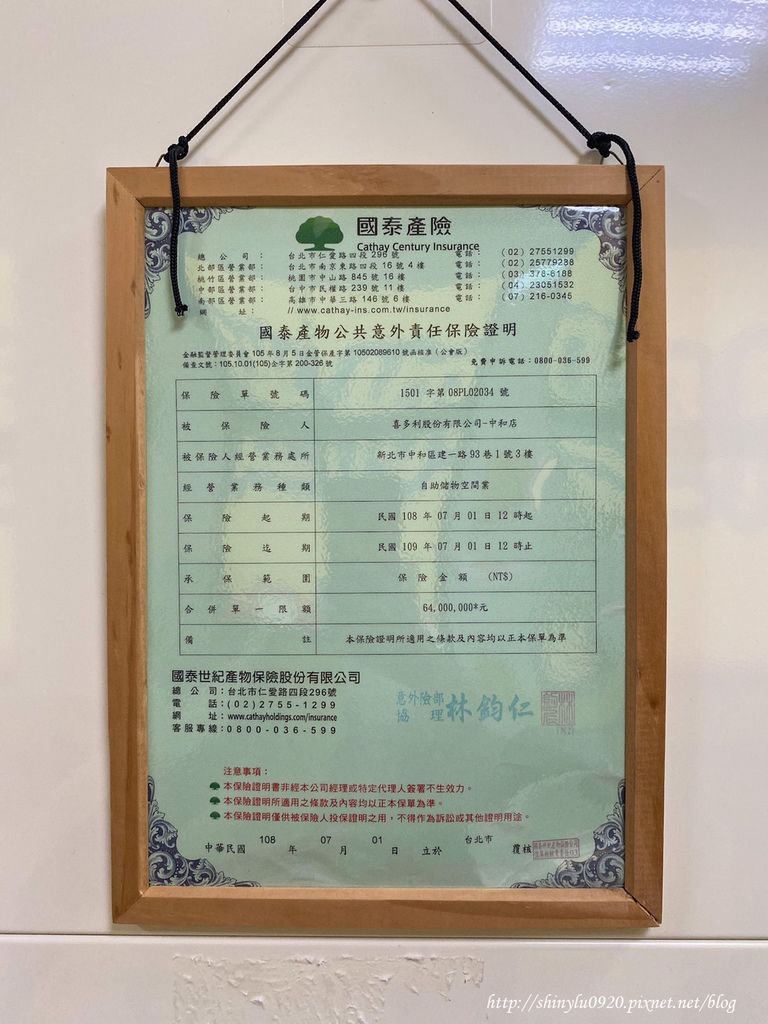 國泰產險
Cathay Century Insurance
總公司： 台北市仁愛路四段 296 號 電話： (02) 27551299
北部區營業部： 台北市南京東路四段 16 號 4 樓 電話： (02) 25779288
桃竹區營業部： 桃園市中山路 845 號 16 樓 電話： (03) 378-6188
中部區營業部： 台中市民權路 239 號 11 樓 電話： (04) 23051532
南部區營業部： 高雄市中華三路 146 號 6 樓 電話： (07) 216-0345
網址： // www.cathay-ins.com.tw/insurance
國泰產物公共意外責任保險證明
金融監督管理委員會 105 年 8 月 5 日金管保產字第 10502089610 號函核准（公會版）
備查文號：105.10.01(105)企字第 200-326 號 免費申訴電話：0800-036-599
保險單號碼 1501 字第 08PL02034 號
被保險人 喜多利股份有限公司-中和店
被保險人經營業務處所 新北市中和區建一路 93 巷 1 號 3 樓
經營業務種類 自助儲物空間業
保險起期 民國 108 年 07 月 01 日 12 時起
保險迄期 民國 109 年 07 月 01 日 12 時止
承保範圍 保險金額 (NT$)
合併單一限額 64,000,000*元
備註 本保險證明所適用之條款及內容均以正本保單為準
國泰世紀產物保險股份有限公司
總公司：台北市仁愛路四段296號
電話：(02)2755-1299
網址：www.cathayholdings.com/insurance
客服專線：0800-036-599
意外險部
協理 林鈞仁
注意事項：
本保險證明書非經本公司經理或特定代理人簽署不生效力。
本保險證明所適用之條款及內容均以正本保單為準。
本保險證明僅供被保險人投保證明之用，不得作為訴訟或其他證明用途。
中華民國 108 年 07 月 01 日 立於 台北市 覆核
http://shinylu0920.pixnet.net/blog